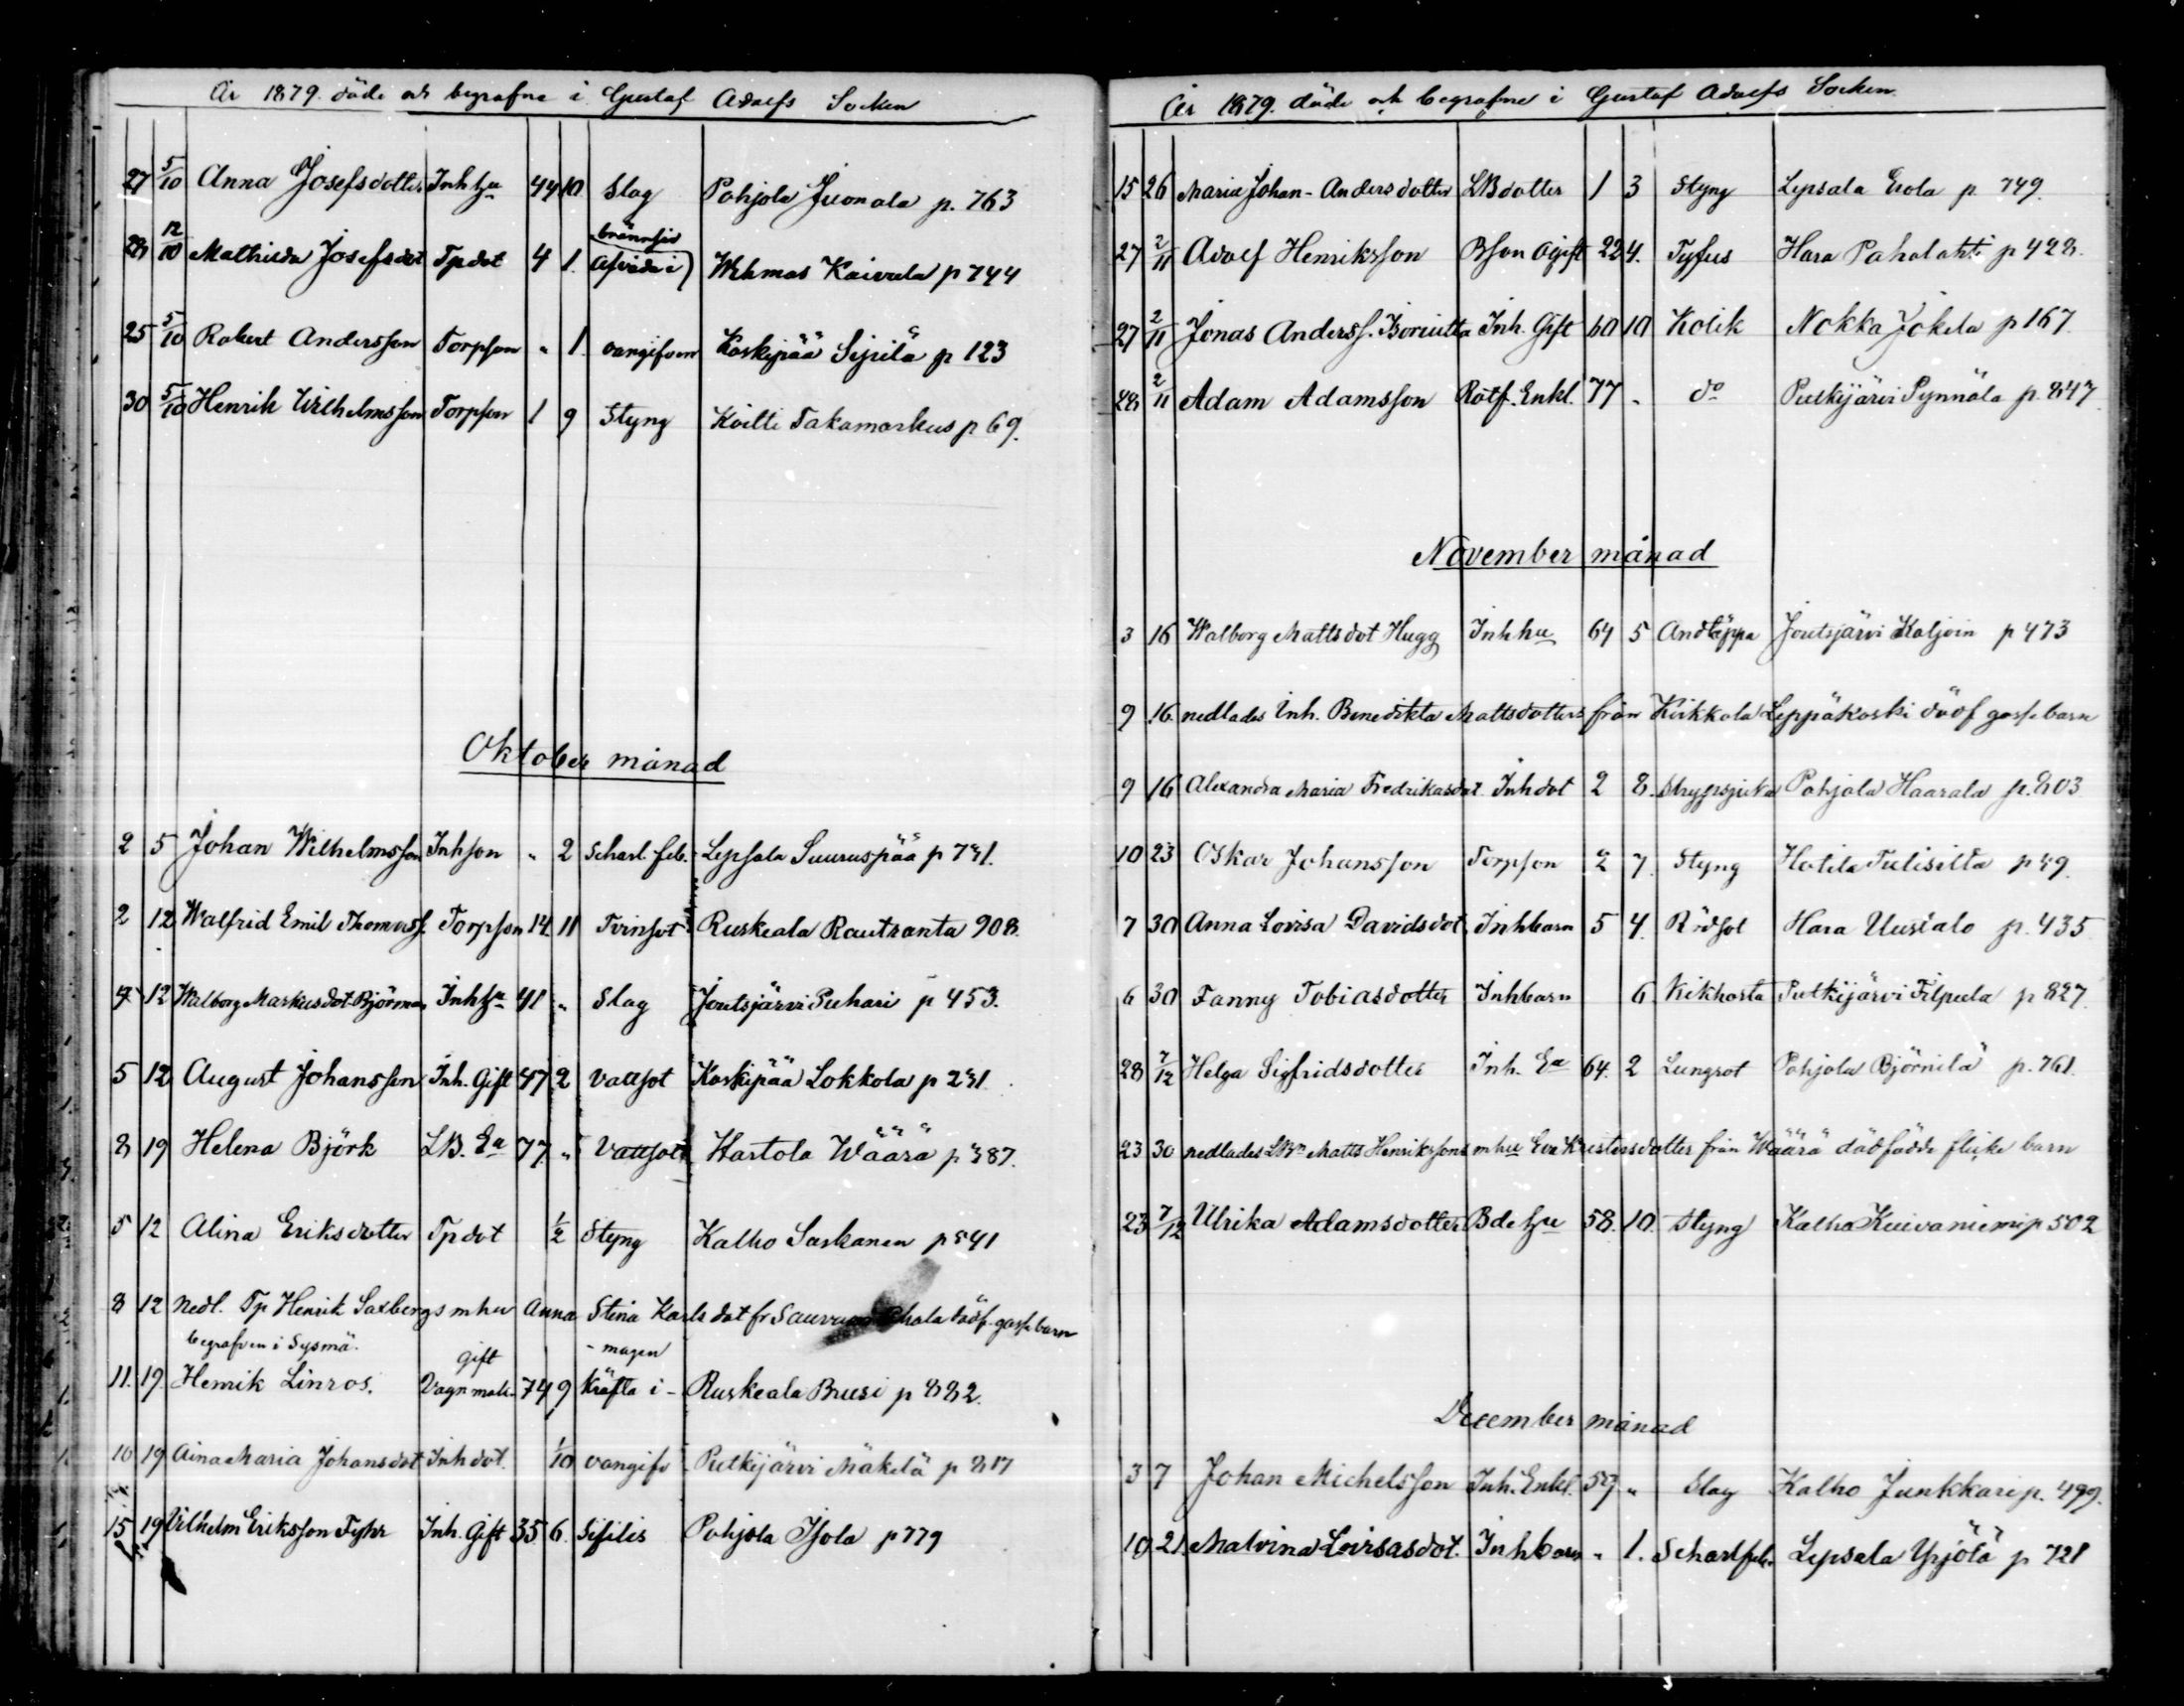 År 1879. döde och begrafne i Gustaf Adolfs Socken
27 5/10 Anna Josefsdotter Inh hu 44 10 Slag Pohjola Juonala p. 763
brännsår
28 12/10 Mathilda Josefsdot Tpdot 4 1. Wehmas Kaivula p 744
25 5/10 Robert Andersson Torpson " 1. oangifven Koskipää Sipilä p 123
30 5/10 Henrik Wilhelmsson Torpson 1 9 Styng Koitti Takamarkus p 69.
Oktober månad
2 5 Johan Wilhelmsson Inhson " 2 Scharl. feb. Lepsala Suuruspää p 731.
2 12 Walfrid Emil Thomass. Torpson 14 11 Tvinsot Ruskeala Rautranta 908.
4 12 Walborg Markusdot Björman Inh hu 41 " Slag Joutsjärvi Puhari p 453.
5 12 August Johansson Inh. Gift 47 2 Vattsot Koskipää Lokkola p 231.
8 19 Helena Björk LB. Ea 77 " Vattsot Hartola Wäärä p 387.
5 12 Alina Eriksdotter Tpdot 1/2 Styng Kalho Saskanen p 541
8 12 nedl. Tp Henrik Saxbergs mhu Anna Stina Karlsdot fr dödf. gossebarn
begrafven i Sysmä. Gift - magen
11. 19. Henrik Linros. Vagnmak. 74 9 Kräfta i - Ruskeala Bruusi p 882.
10 19 Aina Maria Johansdot Inhdot. 1/10 oangifv Putkijärvi Mäkelä p 817
15 19 Vilhelm Eriksson Fyhr Inh. Gift 35 6. Sifilis Pohjola Isola p 779
År 1879. döde och begrafne i Gustaf Adolfs Socken
15 26 Maria Johan-Andersdotter LBdotter 1 3 Styng Lepsala Erola p 749.
27 2/11 Adolf Henriksson Bson Ogift 22 4. Tyfus Hara Pahalahti p 428.
27 2/11 Jonas Anderss. Inh. Gift 60 10 Kolik Nokka Jokela p 167.
28 2/11 Adam Adamsson Rotf. Enkl. 77 " do Putkijärvi Pynnölä p. 847.
November månad
3 16 Walborg Mattsdot Hugg Inh hu 64 5 Andtäppa Joutsjärvi Koljoin p 473
9 16. nedlades Inh. Benedikta Mattsdotters från Kirkkola Leppäkoski dödf gossebarn
9 16 Alexandra Maria Fredrikasdot Inhdot 2 8. Strypsjuka Pohjola Haarala p. 803
10 23 Oskar Johansson Torpson 2 7. Styng Hotila Tulisilta p 59.
7 30 Anna Lovisa Davidsdot Inhbarn 5 4. Rödsot Hara Uusitalo p. 435
6 30 Fanny Tobiasdotter Inhbarn 6 Kikhosta Putkijärvi Filpula p 827.
28 7/12 Helga Sigfridsdotter Inh. Ea 64. 2 Lungsot Pohjola Björnilä p. 761.
23 30 nedlades LBn Matts Henrikssons mhu Eva Kristersdotter från Wäärä dödfödde flicke barn
23 7/12 Ulrika Adamsdotter Bde hu 58. 10. Styng Kalho Kuivaniemi p 502
December månad
3 7 Johan Michelsson Inh. Enkl. 59 " Slag Kalho Junkkari p. 499.
10 21. Malvina Lovisasdot. Inhbarn " 1. Scharlfeb. Lepsala Yrjölä p 721